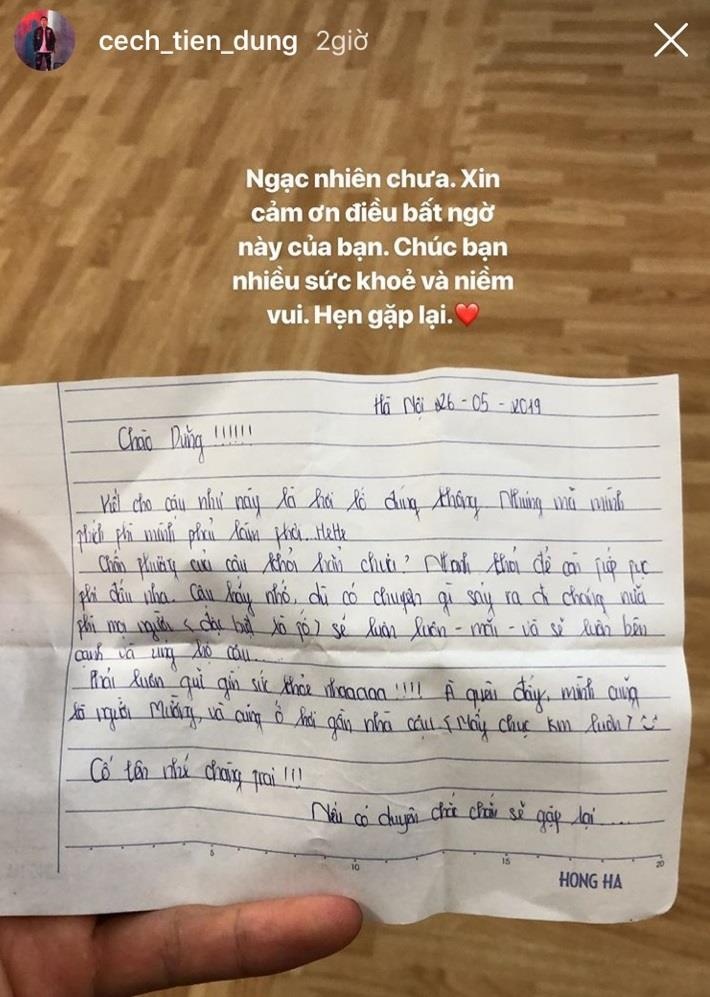 cech_tien_dung 2giờ
Ngạc nhiên chưa. Xin
cảm ơn điều bất ngờ
này của bạn. Chúc bạn
nhiều sức khoẻ và niềm
vui. Hẹn gặp lại.❤️
Hà Nội 26-05-2019
Chào Dũng !!!!!!
Viết cho cậu như này là hơi lố đúng không Nhưng mà mình
thích thì mình phải làm thôi..Hehe
Chấn thương của cậu khỏi hẳn chưa? Nhanh khỏi để còn tiếp tục
thi đấu nha. Cậu hãy nhớ, dù có chuyện gì sảy ra đi chăng nữa
thì mọi người < đặc biệt là tớ > sẽ luôn luôn - mãi - và sẽ luôn bên
cạnh và ủng hộ cậu...
Phải luôn giữ gìn sức khỏe nhaaaaa !!!! À quên đấy, mình cũng
là người Mường, và cũng ở hơi gần nhà cậu < Mấy chục km luôn >
Cố lên nhé chàng trai !!!
Nếu có duyên chắc chắn sẽ gặp lại.....
5 10 15 20
HONG HA